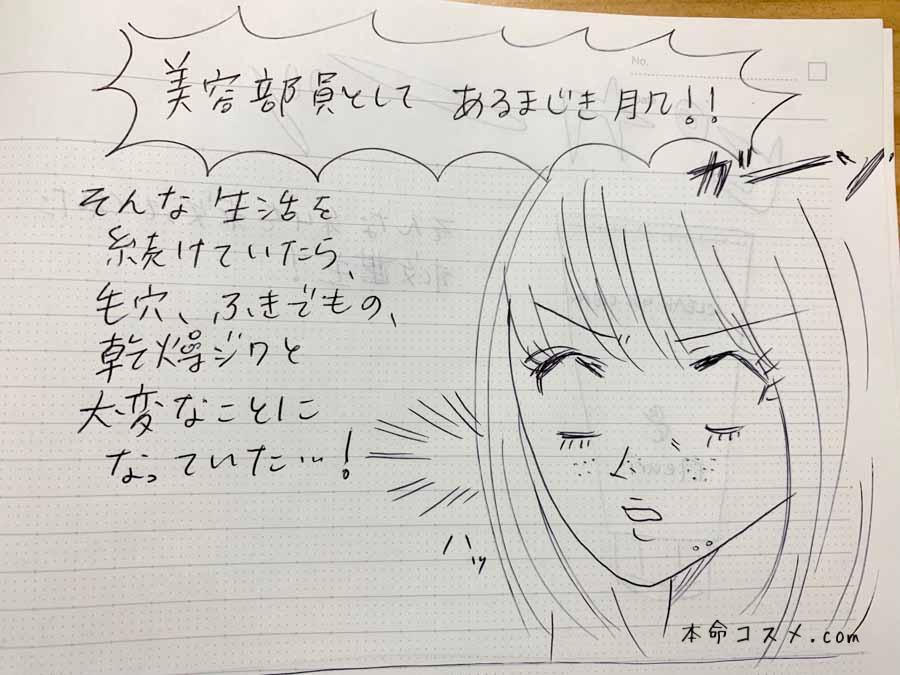 美容部員として あるまじき肌!!
No.
ガーーン
そんな生活を
続けていたら、
毛穴、ふきでもの、
乾燥ジワと
大変なことに
なっていた…!
ハッ
本命コスメ.com